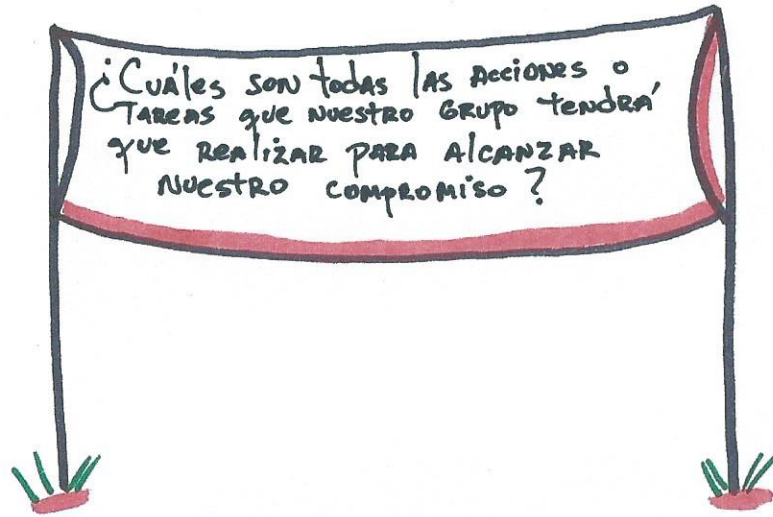 ¿Cuáles son todas las Acciones o
Tareas que nuestro Grupo tendrá
que realizar para Alcanzar
nuestro compromiso?